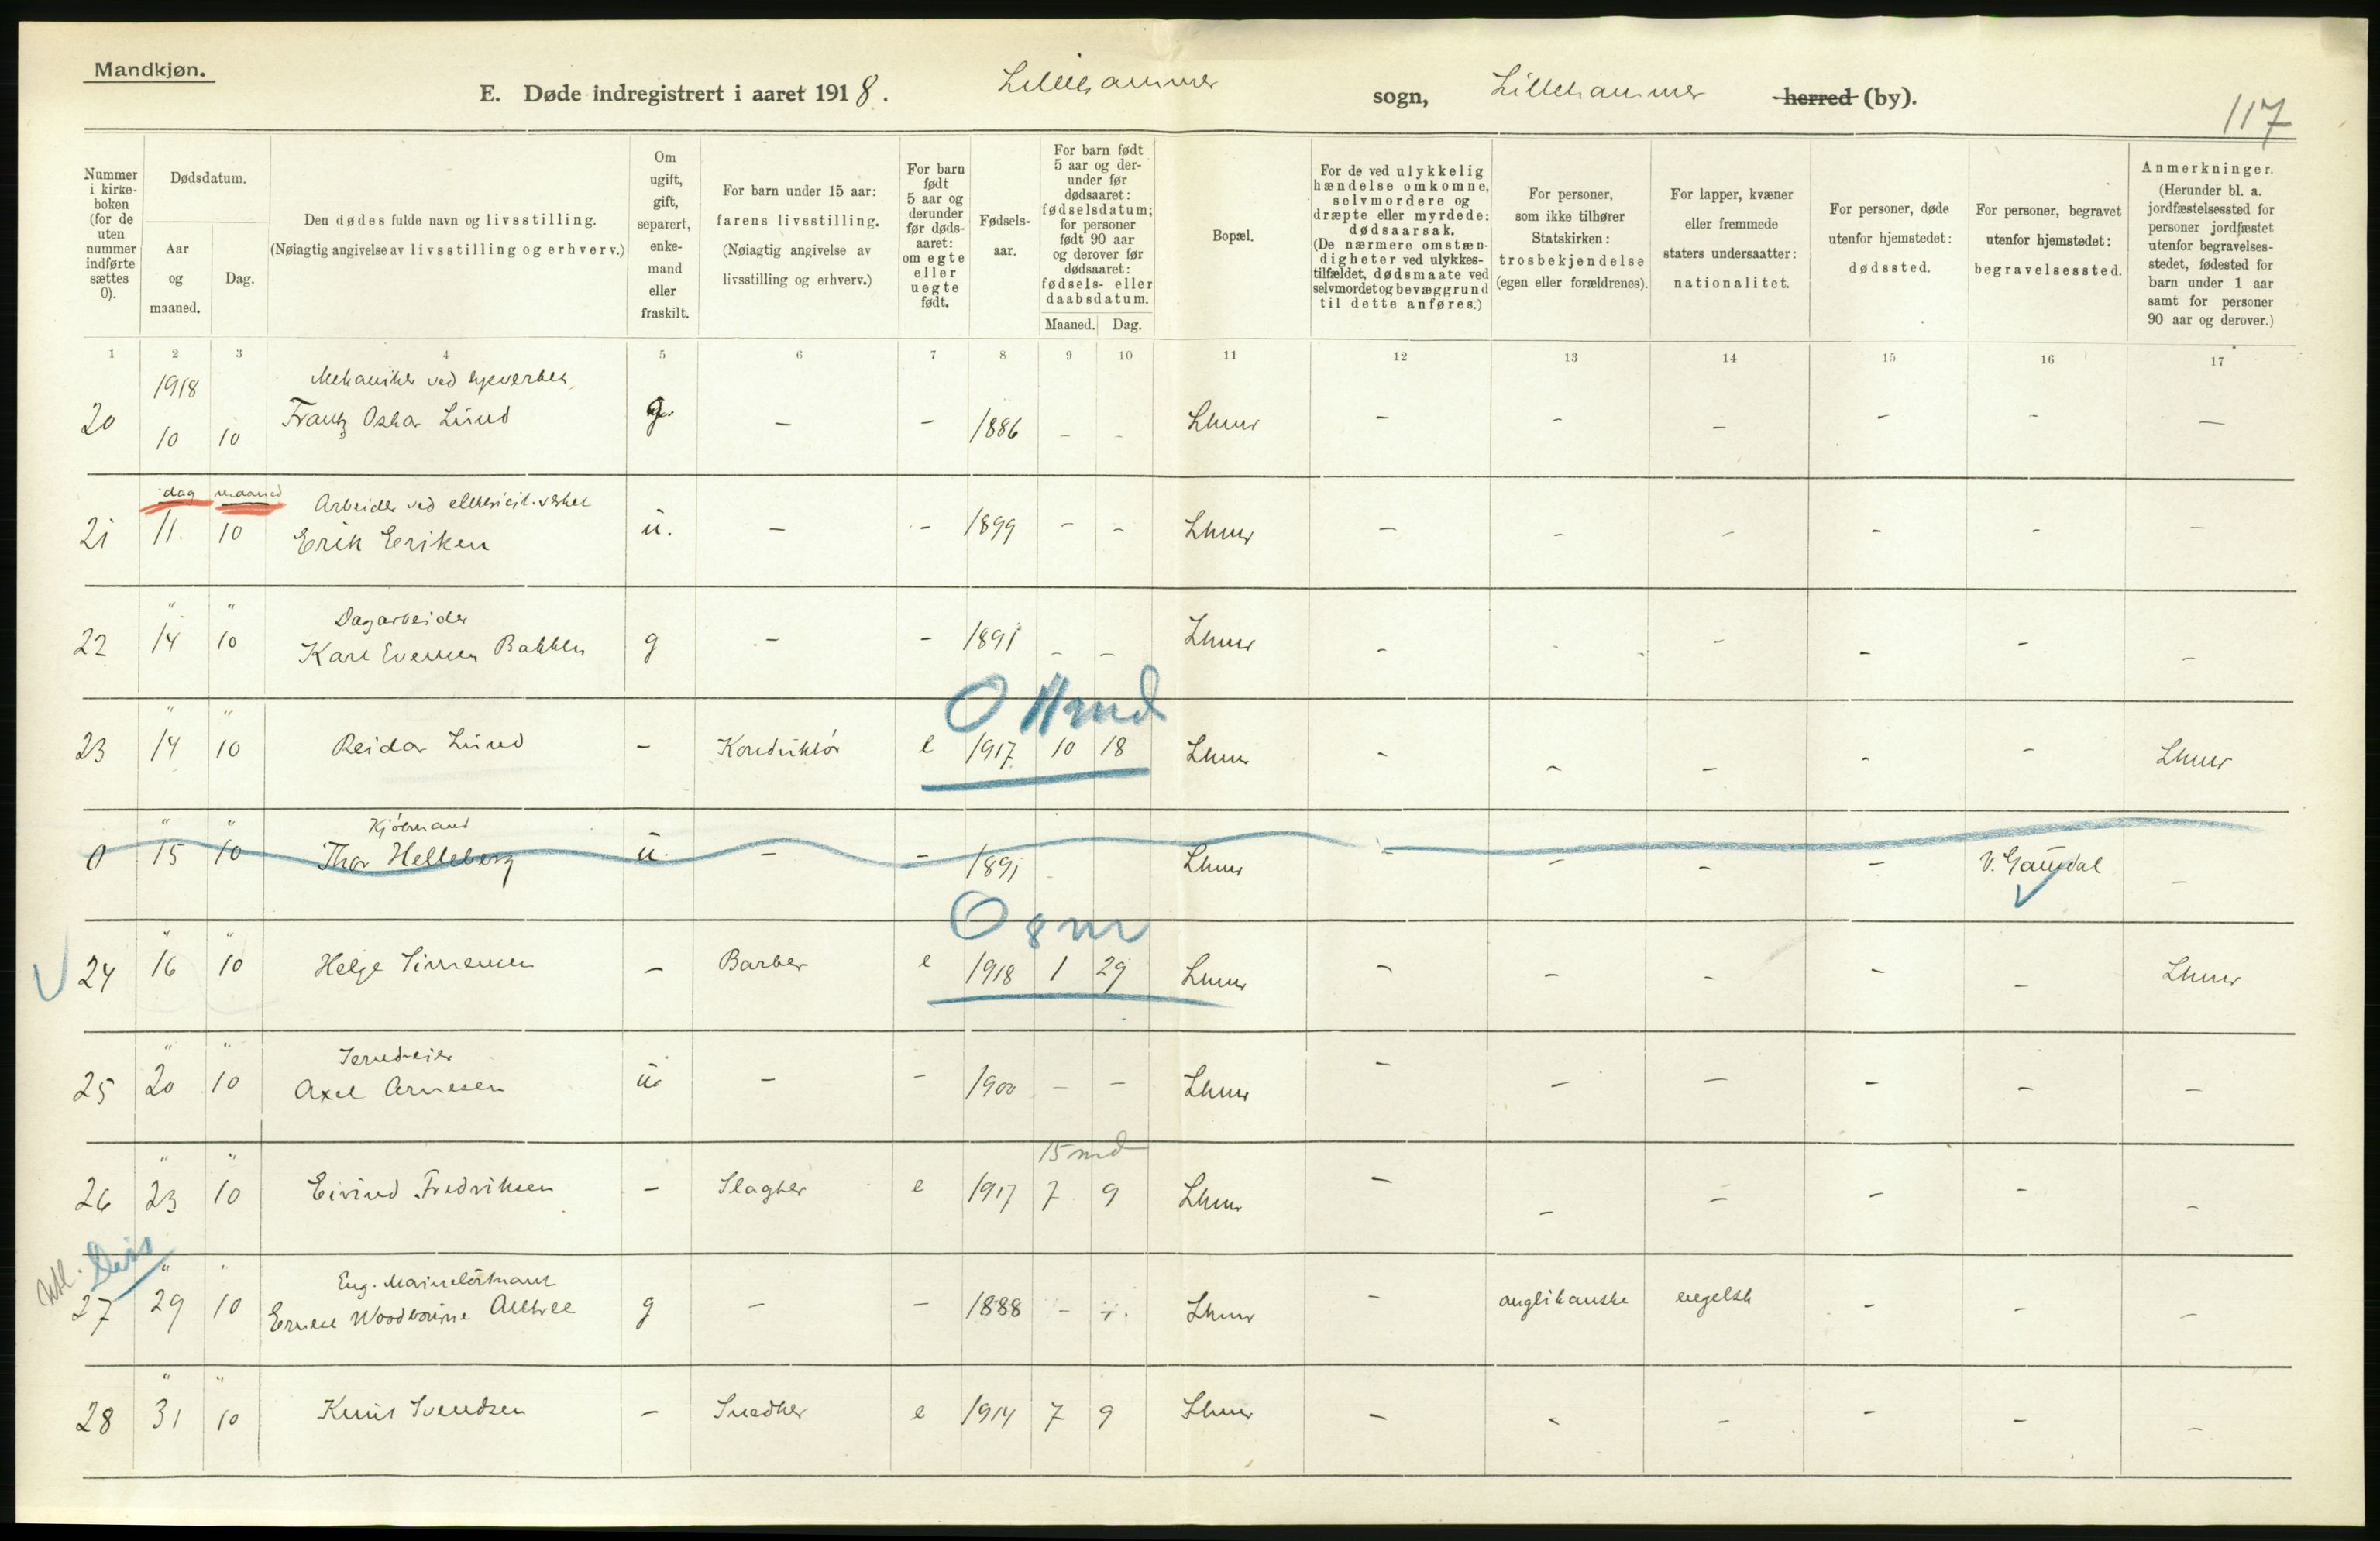 Mandkjøn.
E. Døde indregistrert i aaret 1918. Lillehammer sogn, Lillehammer herred (by).
117
Nummer i kirkeboken (for de uten nummer indførte sættes 0).
Dødsdatum.
Aar og maaned.
Dag.
Den dødes fulde navn og livsstilling.
(Nøiagtig angivelse av livsstilling og erhverv.)
Om ugift, gift, separert, enkemand eller fraskilt.
For barn under 15 aar: farens livsstilling.
(Nøiagtig angivelse av livsstilling og erhverv.)
For barn født 5 aar og derunder før dødsaaret: om egte eller uegte født.
Fødselsaar.
For barn født 5 aar og derunder før dødsaaret: fødselsdatum; for personer født 90 aar og derover før dødsaaret: fødsels- eller daabsdatum.
Maaned. Dag.
Bopæl.
For de ved ulykkelig hændelse omkomne, selvmordere og dræpte eller myrdede: dødsaarsak.
(De nærmere omstændigheter ved ulykkestilfældet, dødsmaate ved selvmordet og bevæggrund til dette anføres.)
For personer, som ikke tilhører Statskirken: trosbekjendelse (egen eller forældrenes).
For lapper, kvæner eller fremmede staters undersaatter: nationalitet.
For personer, døde utenfor hjemstedet: dødssted.
For personer, begravet utenfor hjemstedet: begravelsessted.
Anmerkninger.
(Herunder bl. a. jordfæstelsessted for personer jordfæstet utenfor begravelsesstedet, fødested for barn under 1 aar samt for personer 90 aar og derover.)
1 2 3 4 5 6 7 8 9 10 11 12 13 14 15 16 17
1918 Mekaniker ved
20 10 10 Frantz Oskar Lund g. – – 1886 – – Lhmr – – – – – –
dag maaned Arbeider ved elektricit.verket
21 11. 10 Erik Eriksen u. – – 1899 – – Lhmr – – – – – –
" " Dagarbeider
22 14 10 Karl Evensen Bakken g – – 1891 – – Lhmr – – – – – –
0 11 md
" "
23 14 10 Reidar Lund – Konduktør e 1917 10 18 Lhmr – – – – – Lhmr
" " Kjøbmand
0 15 10 Thor Helleberg u. – – 1891 Lhmr – – – – V. Gausdal –
0 8 m
" "
24 16 10 Helge Simensen – Barber e 1918 1 29 Lhmr – – – – – Lhmr
" "
25 20 10 Axel Arnesen u. – – 1900 – – Lhmr – – – – – –
15 md
" "
26 23 10 Eivind Fredriksen – Slagter e 1917 7 9 Lhmr – – – – – –
" " Eng. Marineløitnant
27 29 10 Woodbourne g – – 1888 – – Lhmr – anglikanske engelsk – – –
" "
28 31 10 Knut Svendsen – Snedker e 1914 7 9 Lhmr – – – – – –